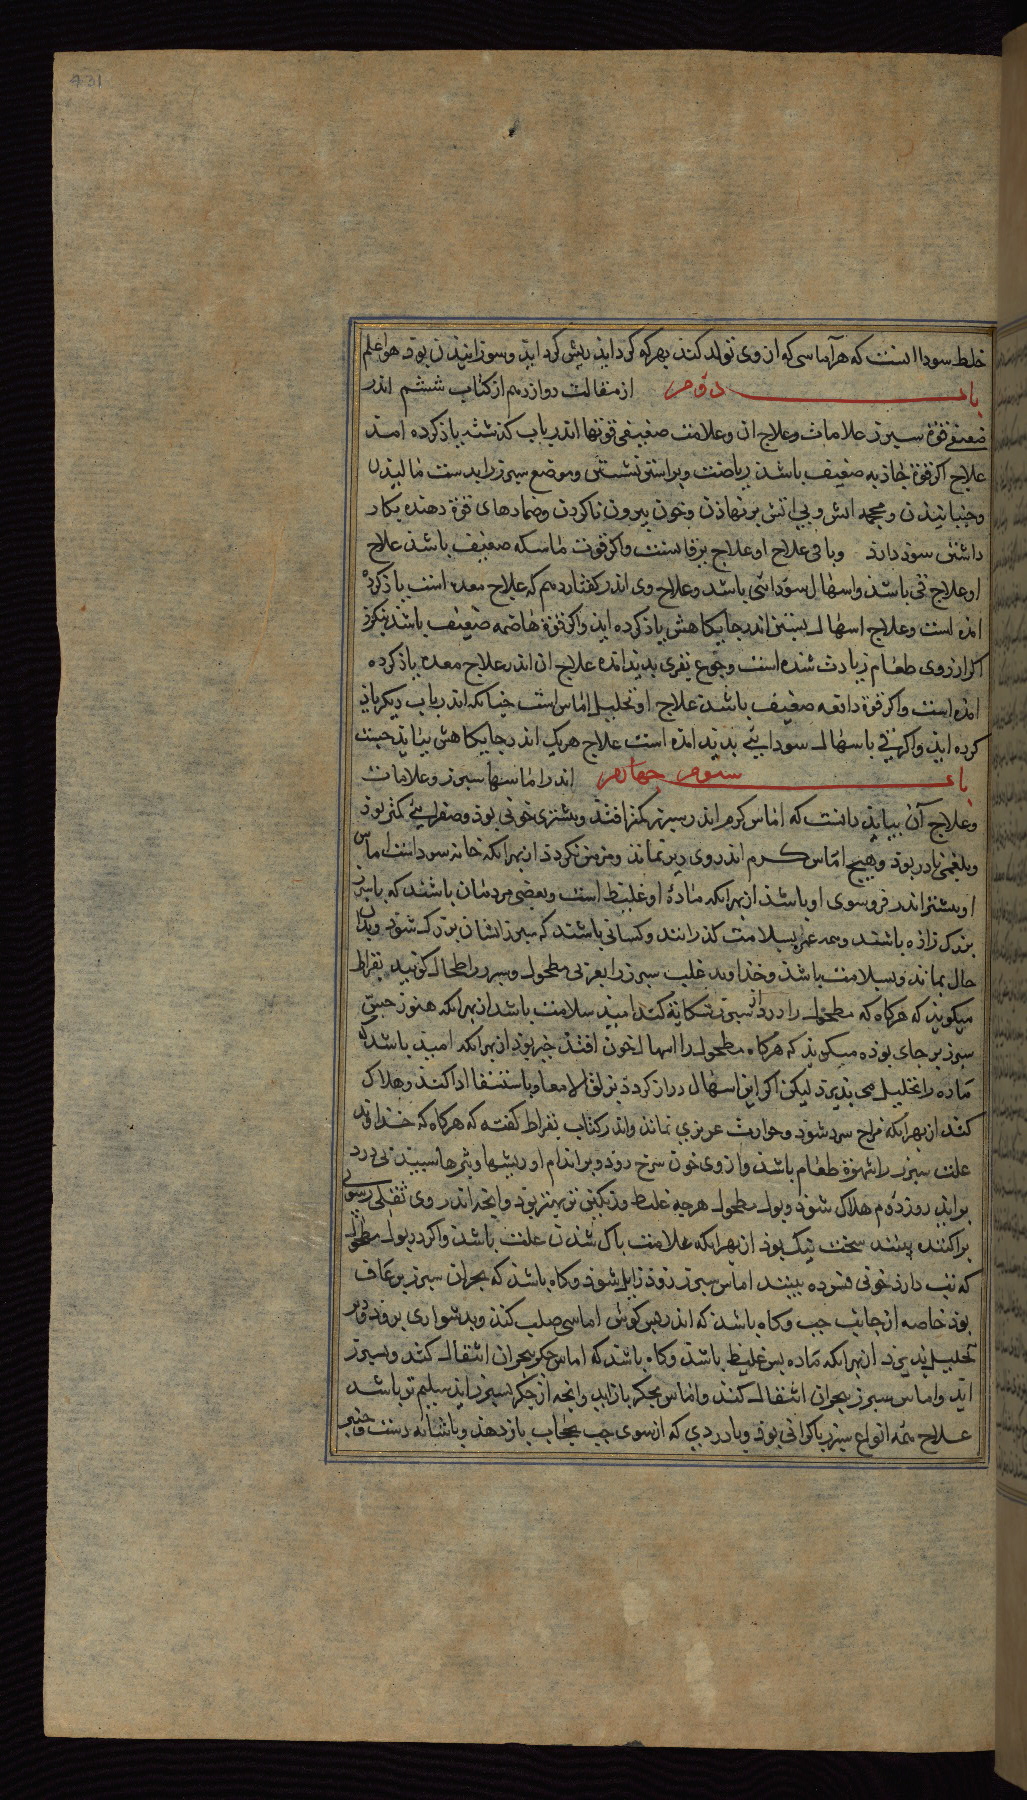 431
خلط سودا است که هر آماسی که از وی تولد کند بهر که کرد اید ریش کرد اید و سوزانیذن بوذ هو اعلم
باب دوم از مقالت دوازدهم از کتاب ششم اندر
ضعیفی قوة سپرز علامات و علاج ان و علامت ضعیفی قوتها اندر باب کذشته یاذ کرده امذ
علاج اکر قوة جاذبه ضعیف باشذ ریاضت و بر اسب نشستن و موضع سپرز را بدست مالیذن
و جنبانیذن و محجمه اتش و بی اتش بر نهاذن و خون بیرون ناکردن و ضمادهای قوة دهنده بکار
داشتن سوذ دارذ و باقی علاج او علاج یرقانست و اکر قوت ماسکه ضعیف باشذ علاج
او علاج قی باشذ و اسهال سودائی باشد و علاج وی اندر کفتار دهم که علاج معده است یاذ کرده
امذه است و علاج اسهال بستن اندر جایکاهش یاذ کرده ایذ و اکر قوة هاضمه ضعیف باشذ بنکرذ
اکر ارزوی طعام زیادت شده است و جوع بقری بدیذ امده علاج ان اندر علاج معده یاذ کرده
امذه است و اکر قوة دافعه ضعیف باشذ علاج او تحلیل اماس است چنانکه اندر باب دیکر یاذ
کرده ایذ و اکر قی با سهال سودایی بدیذ امذه است علاج هر یک اندر جایکاهش بیایذ جست
باب سوم اندر اماسها سپرز و علامات
و علاج آن ببایذ دانست که اماس کرم اندر سپرز کمتر افتذ و بیشتری خونی بوذ و صفرایی کمتر بوذ
و بلغمی نادر بوذ و هیچ اماس کرم اندر وی دیر نماند و مزمن نکردذ از بهر انکه خانه سوداست اماس
او بیشتر اندر فروسوی او باشذ از بهر انکه ماده او غلیظ است و بعضی مردمان باشند که با سپرز
بزرک زاده باشند و همه عمر بسلامت کذرانند و کسانی باشند که سپرز ایشان بزرک شوذ و بذان
حال بماند و بسلامت باشذ و خذاوند علت سپرز را بعربی مطحول و سپرز را طحال کویند بقراط
میکویذ که هرکاه که مطحول را درد از سپرز شکایة کند امیذ سلامت باشذ از بهر انکه هنوز حس
سپرز بر جای بوذه میکویذ که هرکاه مطحول را اسهال خون افتذ خیر بوذ از بهر انکه امیذ باشذ که
ماده را تحلیل می پذیرد لیکن اکر این اسهال دراز کردد بزلق الامعا و باستسقا ادا کند و هلاک
کند از بهر انکه مزاج سرد شوذ و حرارت غریزی نماند و اندر کتاب بقراط کفته که هرکاه که خداوند
علت سپرز را شهوة طعام باشذ و از وی خون سرخ روذ و بر اندام او ریشها و بثرها سپیذ بی درد
براید روز دوم هلاک شوذ و بول مطحول هرچه غلیظ و رنکین تر بهتر بوذ و انجه اندر وی ثفلی رسوبی
پراکنده بینند سخت نیک بوذ از بهر انکه علامت پاک شذن علت باشذ و اکر در بول مطحول
که تب دارذ خونی فسرده بینند اماس سپرز زوذ زایل شوذ و کاه باشذ که بحران سپرز برعاف
بوذ خاصه از جانب چپ و کاه باشذ که اندر بن کوش اماسی صلب کند و بدشواری برود و دیر
تحلیل پذیرذ از بهر انکه ماده بس غلیظ باشذ و کاه باشذ که اماس جکر ببحران انتقال کند و بسپرز
اید و اماس سپرز ببحران انتقال کند و اماس بجکر باز اید و انجه از جکر بسپرز اید سلیم تر باشد
علاج همه انواع سپرز با کرانی بوذ و با دردی که از سوی چپ بحجاب باز دهذ و با شانه دست